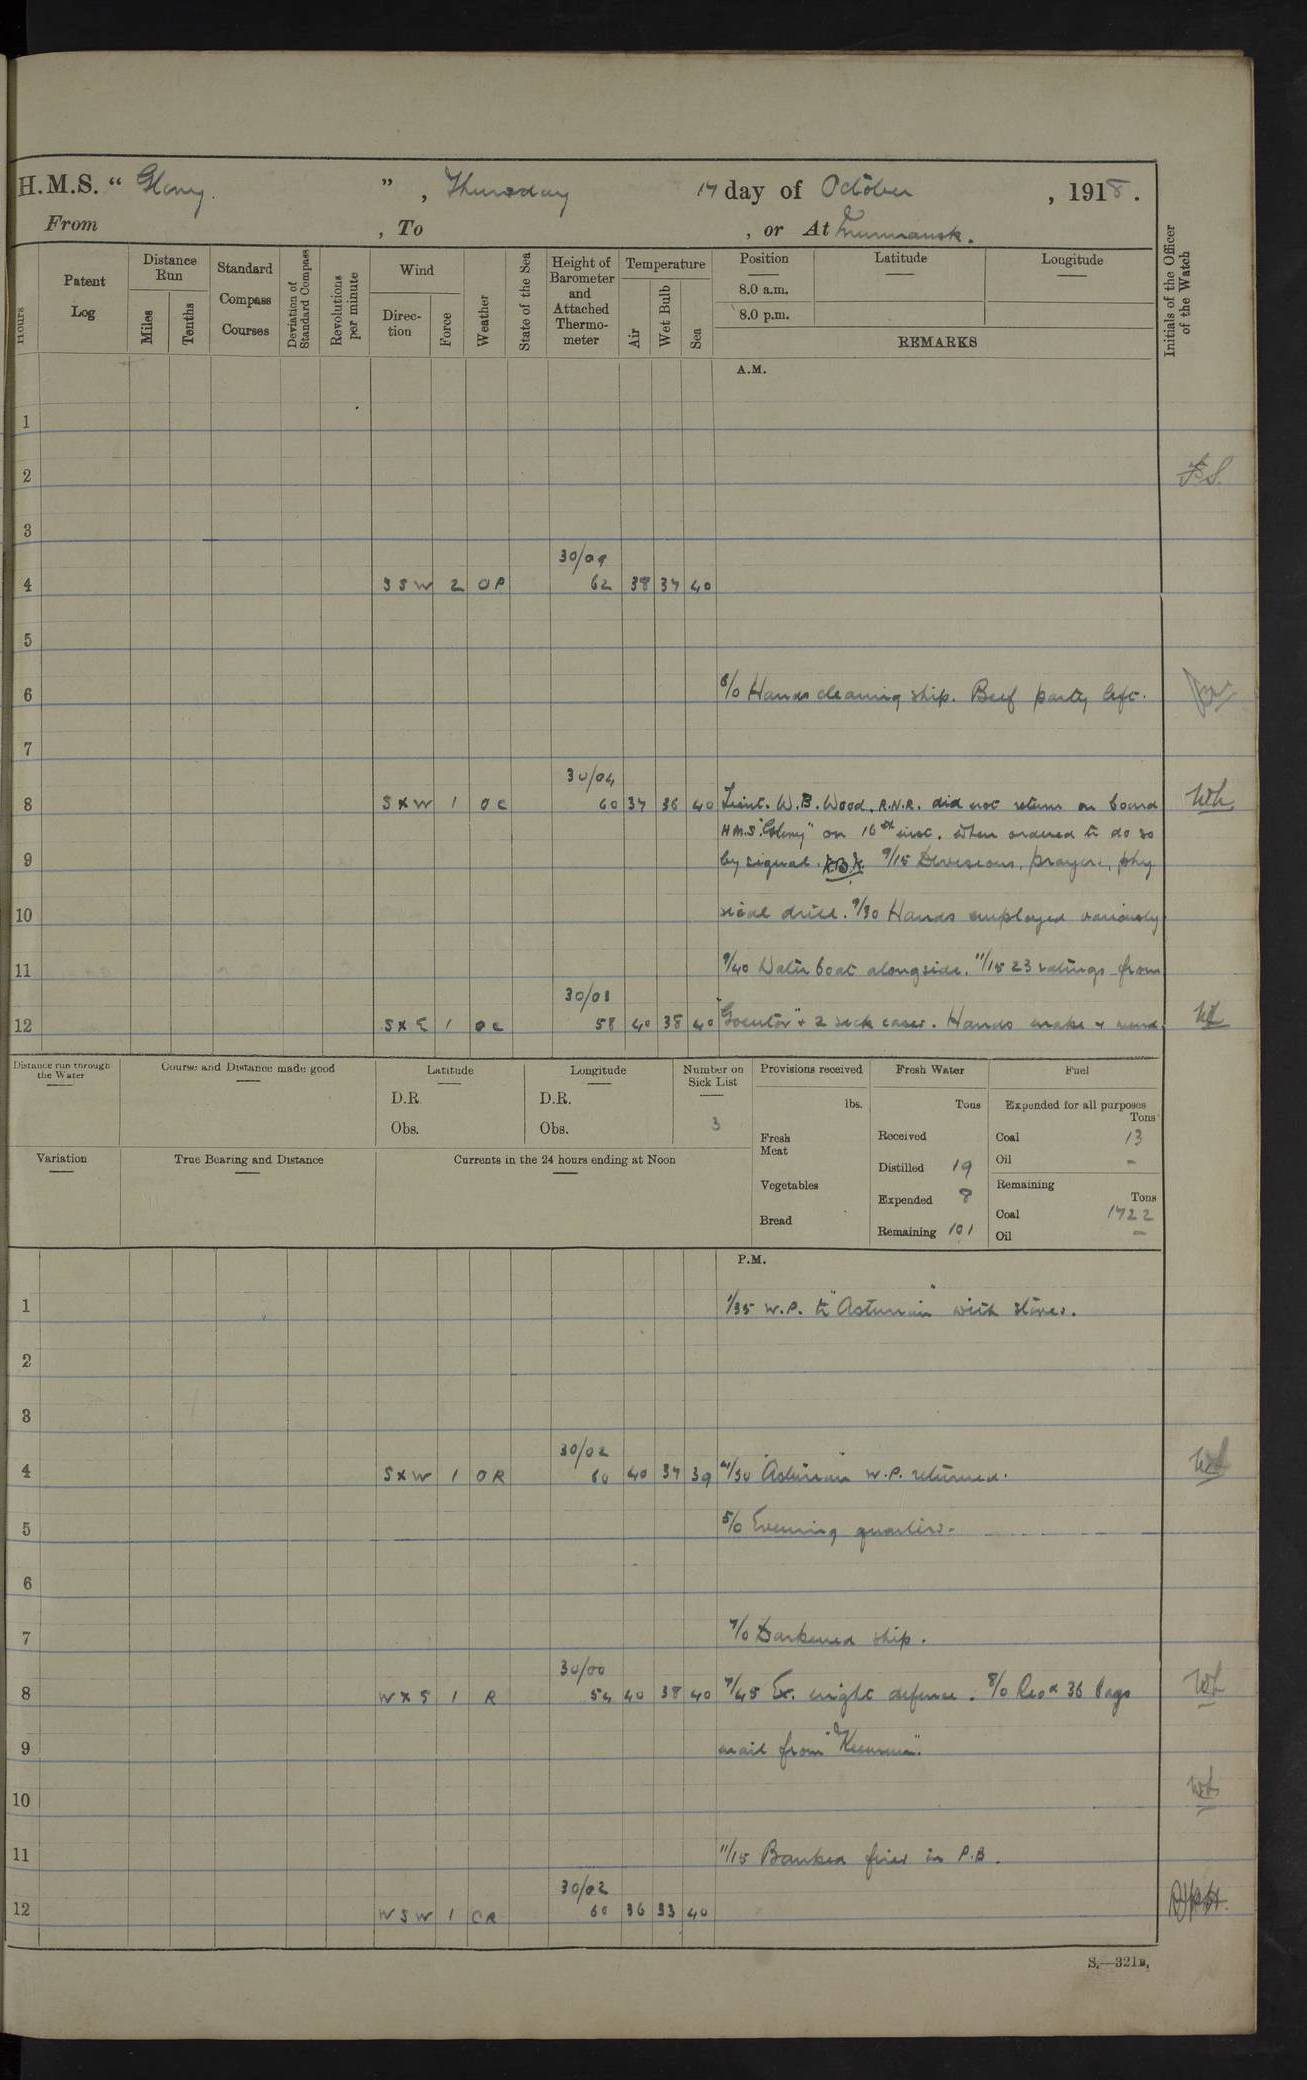 H.M.S. " Glory. " , Thursday 17 day of October , 1918.
From , To , or At Murmansk.
Hours
Patent Log
Distance Run
Miles
Tenths
Standard Compass Courses
Deviation of Standard Compass
Revolutions per minute
Wind
Direc-tion
Force
Weather
State of the Sea
Height of Barometer and Attached Thermo-meter
Temperature
Air
Wet Bulb
Sea
Position
8.0 a.m.
8.0 p.m.
Latitude
Longitude
REMARKS
Initials of the Officer of the Watch
A.M.
1
2
3
30/09
4 SSW 2 OP 62 38 37 40
5
6 6/0 Hands cleaning ship. Beef party left.
7
30/04
8 SxW 1 OC 60 37 36 40 Lieut. W.B. Wood. R.N.R. did not return on board
H.M.S. "Glory" on 16th inst. when ordered to do so
9 by signal. 9/15 Divisions, prayers, phy
10 sical drill. 9/30 Hands employed variously
11 9/40 Water boat alongside. 11/15 23 ratings from
30/01
12 SxE 1 OC 58 40 38 40 + 2 sick cases. Hands make & mend.
Distance run through the Water
Course and Distance made good
Latitude
D.R.
Obs.
Longitude
D.R.
Obs.
Number on Sick List
3
Provisions received
lbs.
Fresh Meat
Vegetables
Bread
Fresh Water
Tons
Received
Distilled 19
Expended 8
Remaining 101
Fuel
Expended for all purposes
Tons
Coal 13
Oil -
Remaining
Tons
Coal 1722
Oil -
Variation
True Bearing and Distance
Currents in the 24 hours ending at Noon
P.M.
1 1/35 W.P. to "Asturian" with stores.
2
3
30/02
4 SxW 1 OR 60 40 37 39 4/30 "Asturian" W.P. returned.
5 5/0 Evening quarters.
6
7 7/0 Darkened ship.
30/00
8 WxS 1 R 54 40 38 40 7/45 Ex. night defence. 8/0 Recd 36 bags
9 mail from
10
11 11/15 Banked fires in P.B.
30/02
12 WSW 1 OR 60 36 33 40
S.—321B.